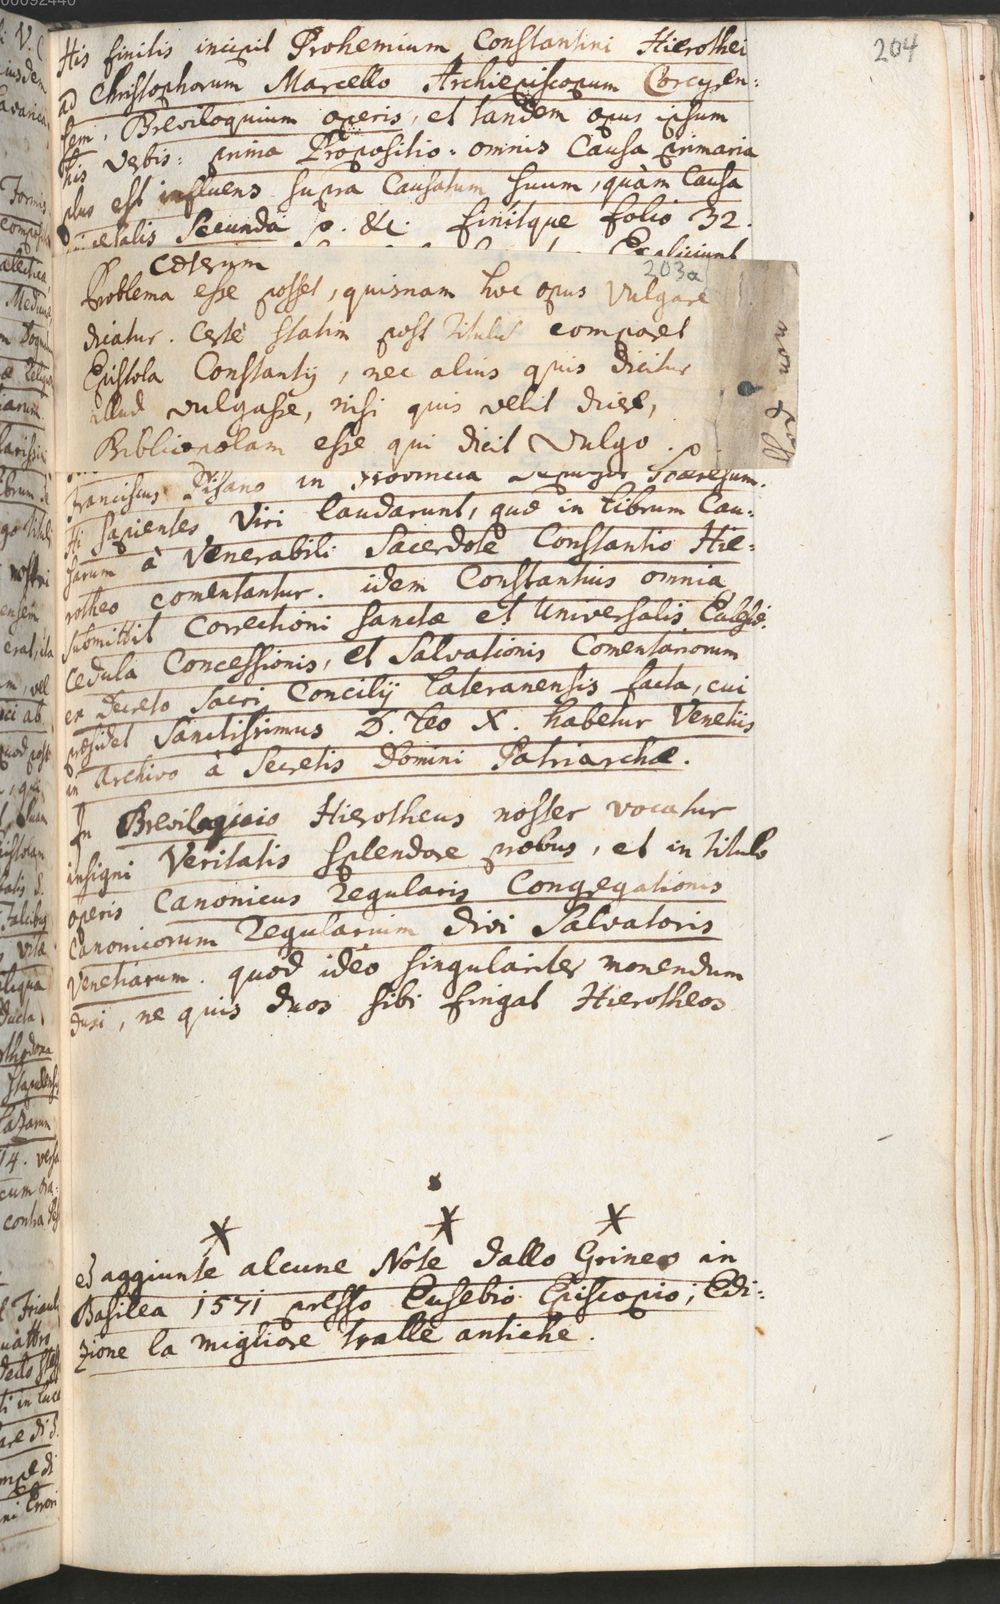 204
His finitis incipit Prohemium Constantini Hierothei
ad Christophorum Marcello Archiepiscopum Corcyren:
sem, Breviloquium operis, et tandem opus ipsum
his verbis: prima Propositio. omnis Causa primaria
plus est influens supra Causatum suum, quàm Causa
Secunda p. &c. finitque folio 32.
Expliciunt
203a
Cœterum
Problema esse posset, quisnam hoc opus vulgare
dicatur. Certè statim post titulum comparet
Epistola Constantij, nec alius quis dicitur
illud vulgasse, nisi quis velit dicere,
Bibliopolam esse qui dicit Vulgo.
non
Franciscus Pisano in Provincia
Hi sapientes Viri laudarunt, quæ in librum Cau:
sarum à Venerabili Sacerdote Constantio Hie:
rotheo comentantur. idem Constantius omnia
submittit Correctioni sanctæ et Universalis Eclesiæ.
Cedula Concessionis, et Salvationis Comentariorum
ex Decreto Sacri Concilij Lateranensis facta, cui
præsidet Sanctissimus D. Leo X. habetur Venetiis
in Archivo à Secretis Domini Patriarchæ.
In Breviloquio Hierotheus noster vocatur
insigni Veritatis splendore probus, et in titulo
operis Canonicus Regularis Congregationis
Canonicorum Regularium Divi Salvatoris
Venetiarum. quod ideò singulariter monendum
duxi, ne quis duos sibi fingat Hierotheos
ed aggiunte alcune Note dallo Grineo in
Basilea 1571 presso Eusebio Episcopio; Edi:
zione la migliore tralle antiche.